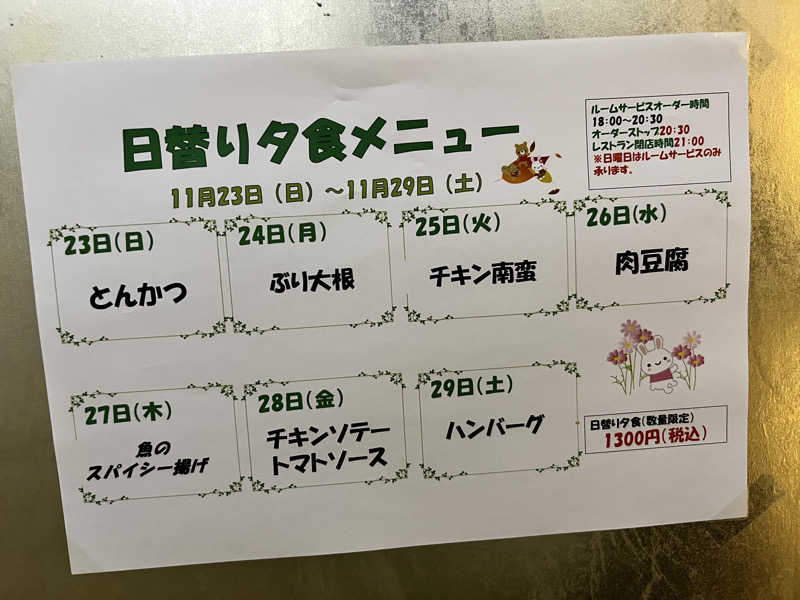 日替り夕食メニュー
11月23日（日）～11月29日（土）
ルームサービスオーダー時間
18:00～20:30
オーダーストップ20:30
レストラン閉店時間21:00
※日曜日はルームサービスのみ
承ります。
23日(日)
とんかつ
24日(月)
ぶり大根
25日(火)
チキン南蛮
26日(水)
肉豆腐
27日(木)
魚の
スパイシー揚げ
28日(金)
チキンソテー
トマトソース
29日(土)
ハンバーグ
日替り夕食(数量限定)
1300円(税込)